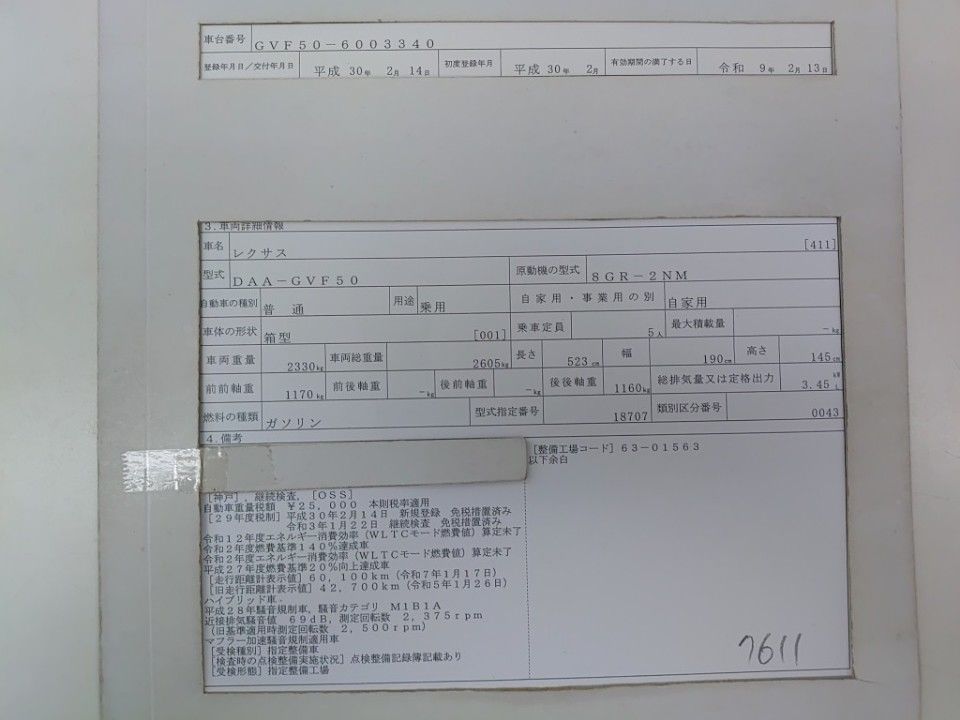 車台番号 GVF50-6003340
登録年月日/交付年月日 平成 30年 2月 14日 初度登録年月 平成 30年 2月 有効期間の満了する日 令和 9年 2月 13日
3.車両詳細情報
車名 レクサス [411]
型式 DAA-GVF50 原動機の型式 8GR-2NM
自動車の種別 普通 用途 乗用 自家用・事業用の別 自家用
車体の形状 箱型 [001] 乗車定員 5人 最大積載量 -kg
車両重量 2330kg 車両総重量 2605kg 長さ 523cm 幅 190cm 高さ 145cm
前前軸重 1170kg 前後軸重 -kg 後前軸重 -kg 後後軸重 1160kg 総排気量又は定格出力 kW 3.45 L
燃料の種類 ガソリン 型式指定番号 18707 類別区分番号 0043
4.備考
[整備工場コード]63-01563
以下余白
[神戸],継続検査,[OSS]
自動車重量税額 ¥25,000 本則税率適用
[29年度税制]平成30年2月14日 新規登録 免税措置済み
令和3年1月22日 継続検査 免税措置済み
令和12年度エネルギー消費効率(WLTCモード燃費値)算定未了
令和2年度燃費基準140%達成車
令和2年度エネルギー消費効率(WLTCモード燃費値)算定未了
平成27年度燃費基準20%向上達成車
[走行距離計表示値]60,100km(令和7年1月17日)
[旧走行距離計表示値]42,700km(令和5年1月26日)
ハイブリッド車
平成28年騒音規制車,騒音カテゴリ M1B1A
近接排気騒音値 69dB,測定回転数 2,375rpm
(旧基準適用時測定回転数 2,500rpm)
マフラー加速騒音規制適用車
[受検種別]指定整備車
[検査時の点検整備実施状況]点検整備記録簿記載あり
[受検形態]指定整備工場
7611